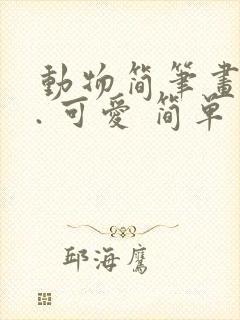 動物简筆畫
.可愛 简單
邱海鷹